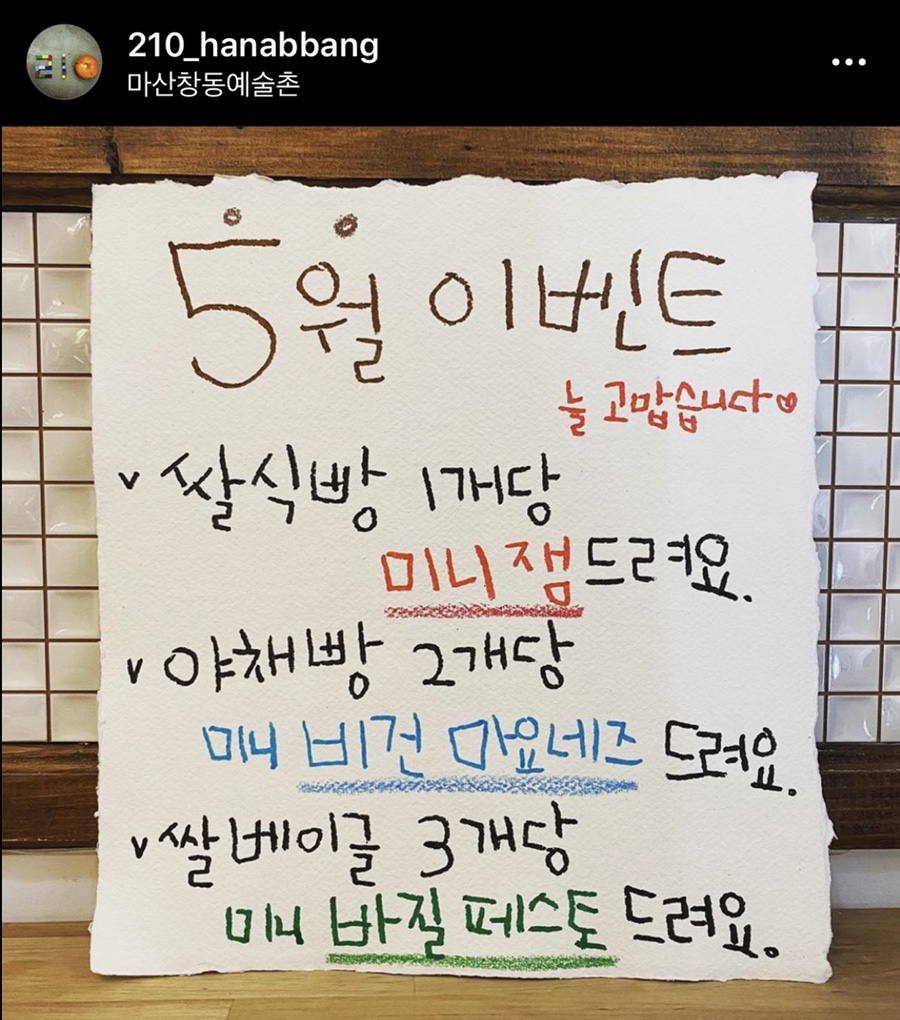 210_hanabbang
마산창동예술촌
5월 이벤트
늘 고맙습니다♡
v 쌀식빵 1개당
미니 잼 드려요.
v 야채빵 2개당
미니 비건 마요네즈 드려요.
v 쌀베이글 3개당
미니 바질 페스토 드려요.